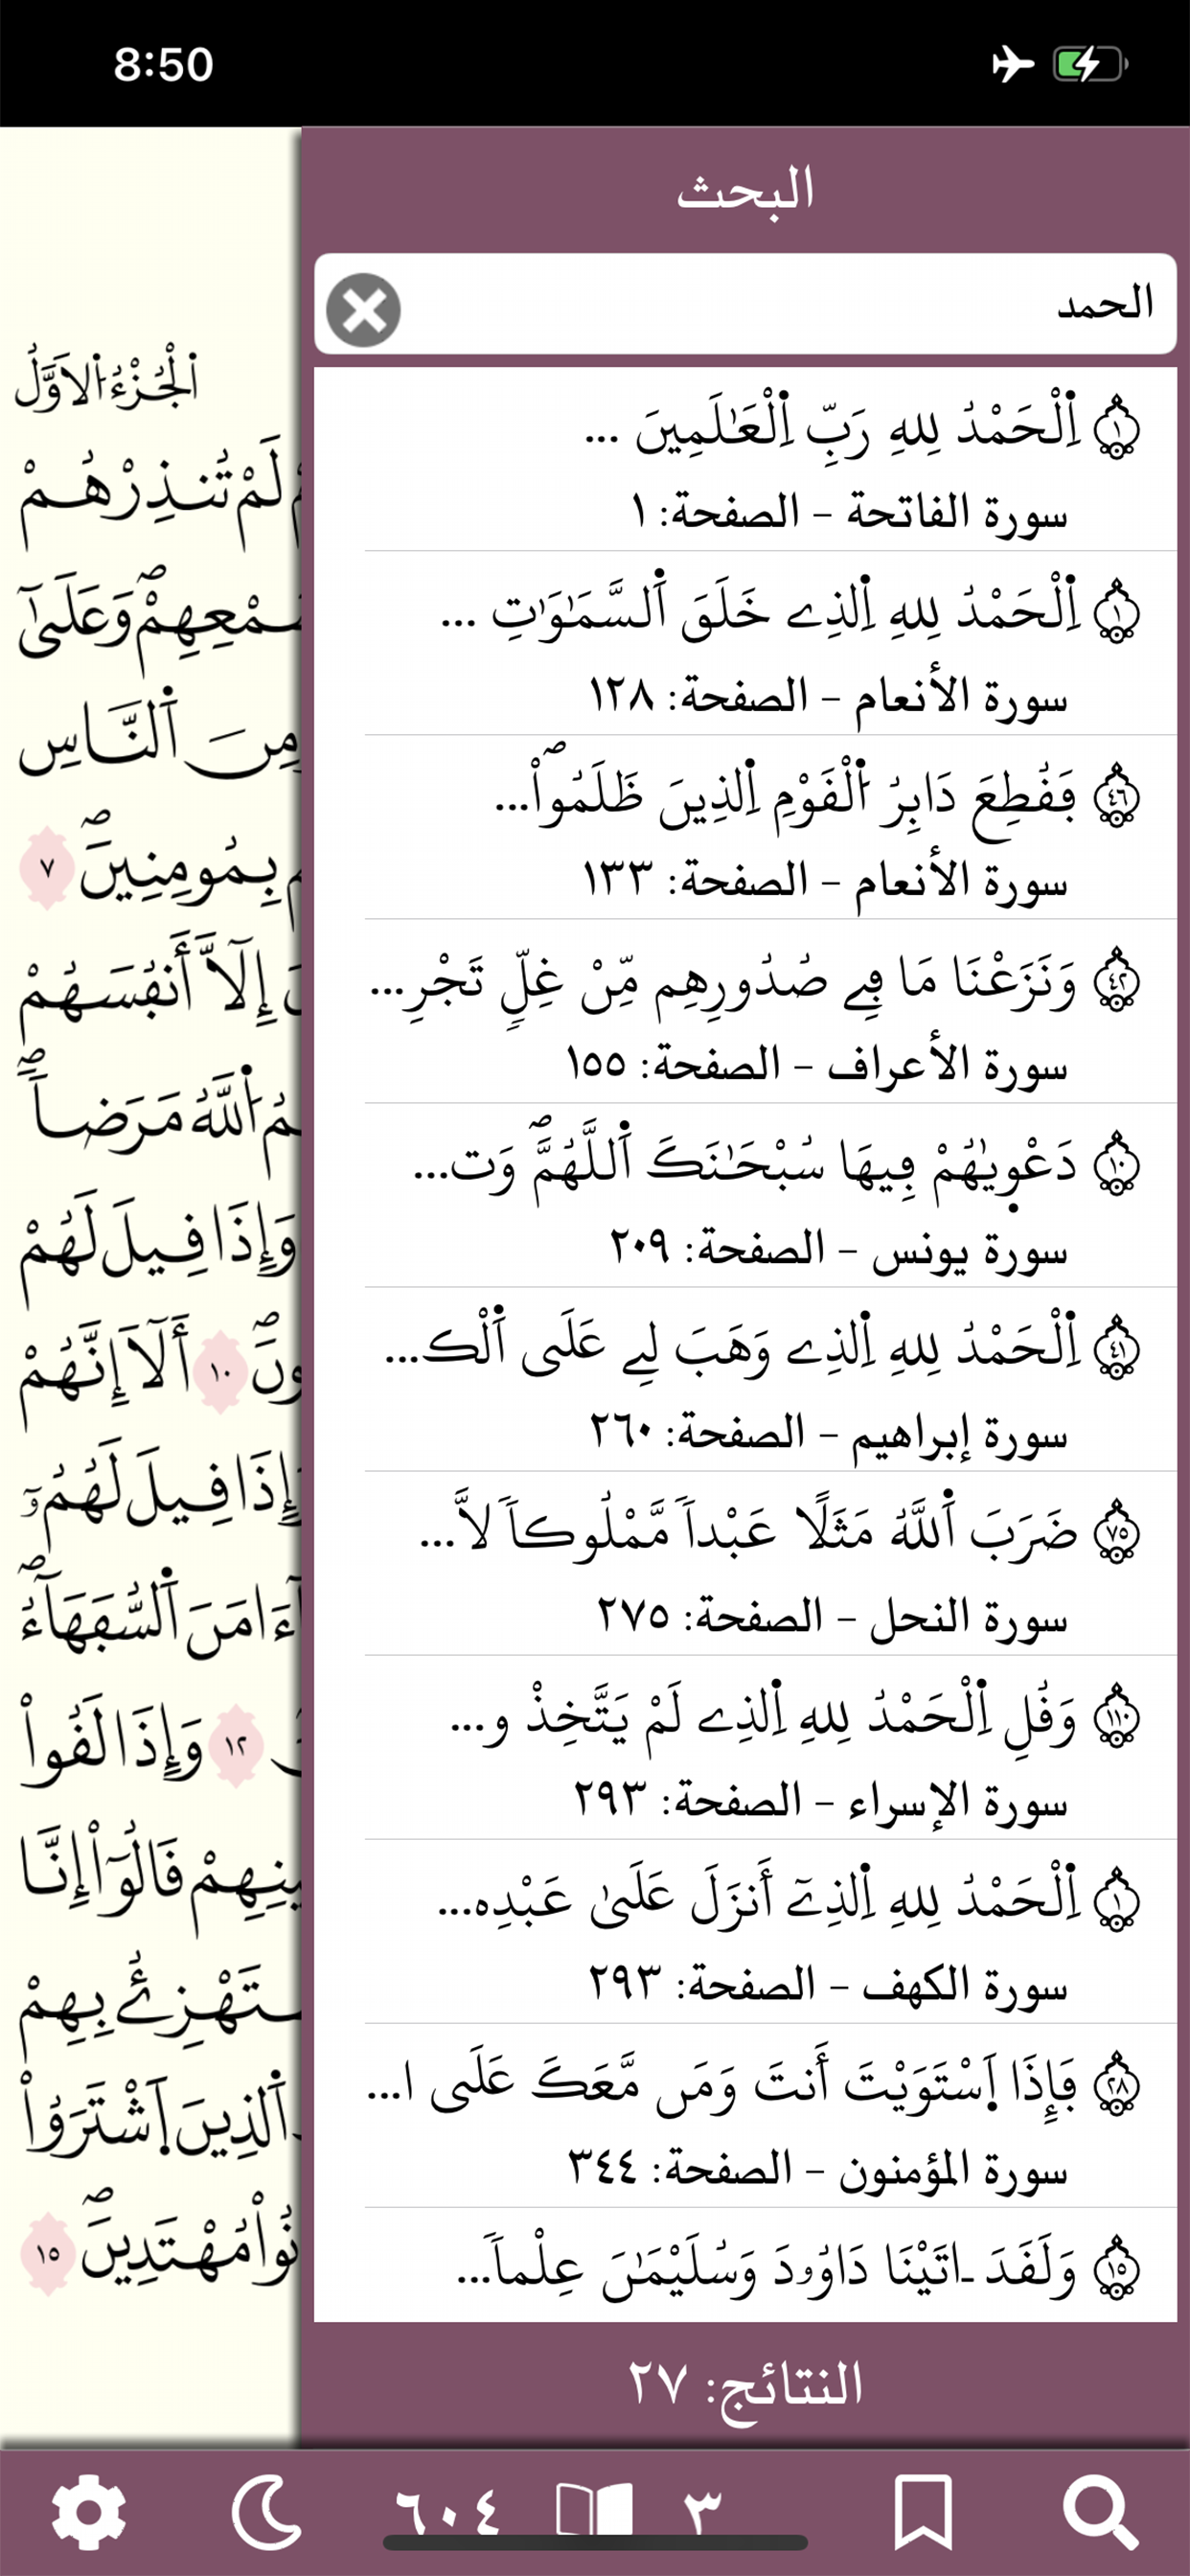 8:50
البحث
الحمد
١ اِ۬لْحَمْدُ لِلهِ رَبِّ اِ۬لْعَٰلَمِينَ ...
سورة الفاتحة – الصفحة: ١
١ اِ۬لْحَمْدُ لِلهِ اِ۬لذِے خَلَقَ اَ۬لسَّمَٰوَٰتِ ...
سورة الأنعام – الصفحة: ١٢٨
٤٦ فَقُطِعَ دَابِرُ اُ۬لْقَوْمِ اِ۬لذِينَ ظَلَمُواْۖ...
سورة الأنعام – الصفحة: ١٣٣
٤٢ وَنَزَعْنَا مَا فِے صُدُورِهِم مِّنْ غِلّٖ تَجْرِ...
سورة الأعراف – الصفحة: ١٥٥
١٠ دَعْوٜيٰهُمْ فِيهَا سُبْحَٰنَكَ اَ۬للَّهُمَّۖ وَت...
سورة يونس – الصفحة: ٢٠٩
٤١ اِ۬لْحَمْدُ لِلهِ اِ۬لذِے وَهَبَ لِے عَلَى اَ۬لْك...
سورة إبراهيم – الصفحة: ٢٦٠
٧٥ ضَرَبَ اَ۬للَّهُ مَثَلًا عَبْداٗ مَّمْلُوكاٗ لاَّ...
سورة النحل – الصفحة: ٢٧٥
١١٠ وَقُلِ اِ۬لْحَمْدُ لِلهِ اِ۬لذِے لَمْ يَتَّخِذْ و...
سورة الإسراء – الصفحة: ٢٩٣
١ اِ۬لْحَمْدُ لِلهِ اِ۬لذِےٓ أَنزَلَ عَلَىٰ عَبْدِه...
سورة الكهف – الصفحة: ٢٩٣
٢٨ فَإِذَا اَ۪سْتَوَيْتَ أَنتَ وَمَن مَّعَكَ عَلَى ا...
سورة المؤمنون – الصفحة: ٣٤٤
١٥ وَلَقَدَ ـاتَيْنَا دَاوُۥدَ وَسُلَيْمَٰنَ عِلْماٗ...
النتائج: ٢٧
٣ ٦٠٤
اُ۬لْجُزْءُ اُ۬لْأَوَّلُ
لَمْ تُنذِرْهُمْ
سَمْعِهِمْۖ وَعَلَىٰٓ
مِنَ اَ۬لنَّاسِ
بِمُومِنِينَۖ ٧
إِلَّآ أَنفُسَهُمْ
اُ۬للَّهُ مَرَضاٗۖ
وَإِذَا قِيلَ لَهُمْ
١٠ أَلَآ إِنَّهُمْ
إِذَا قِيلَ لَهُمُۥٓ
ءَامَنَ اَ۬لسُّفَهَآءُۖ
١٢ وَإِذَا لَقُواْ
قَالُوٓاْ إِنَّا
بِهِمْ
اَ۬لذِينَ اَ۪شْتَرَوُاْ
مُهْتَدِينَۖ ١٥